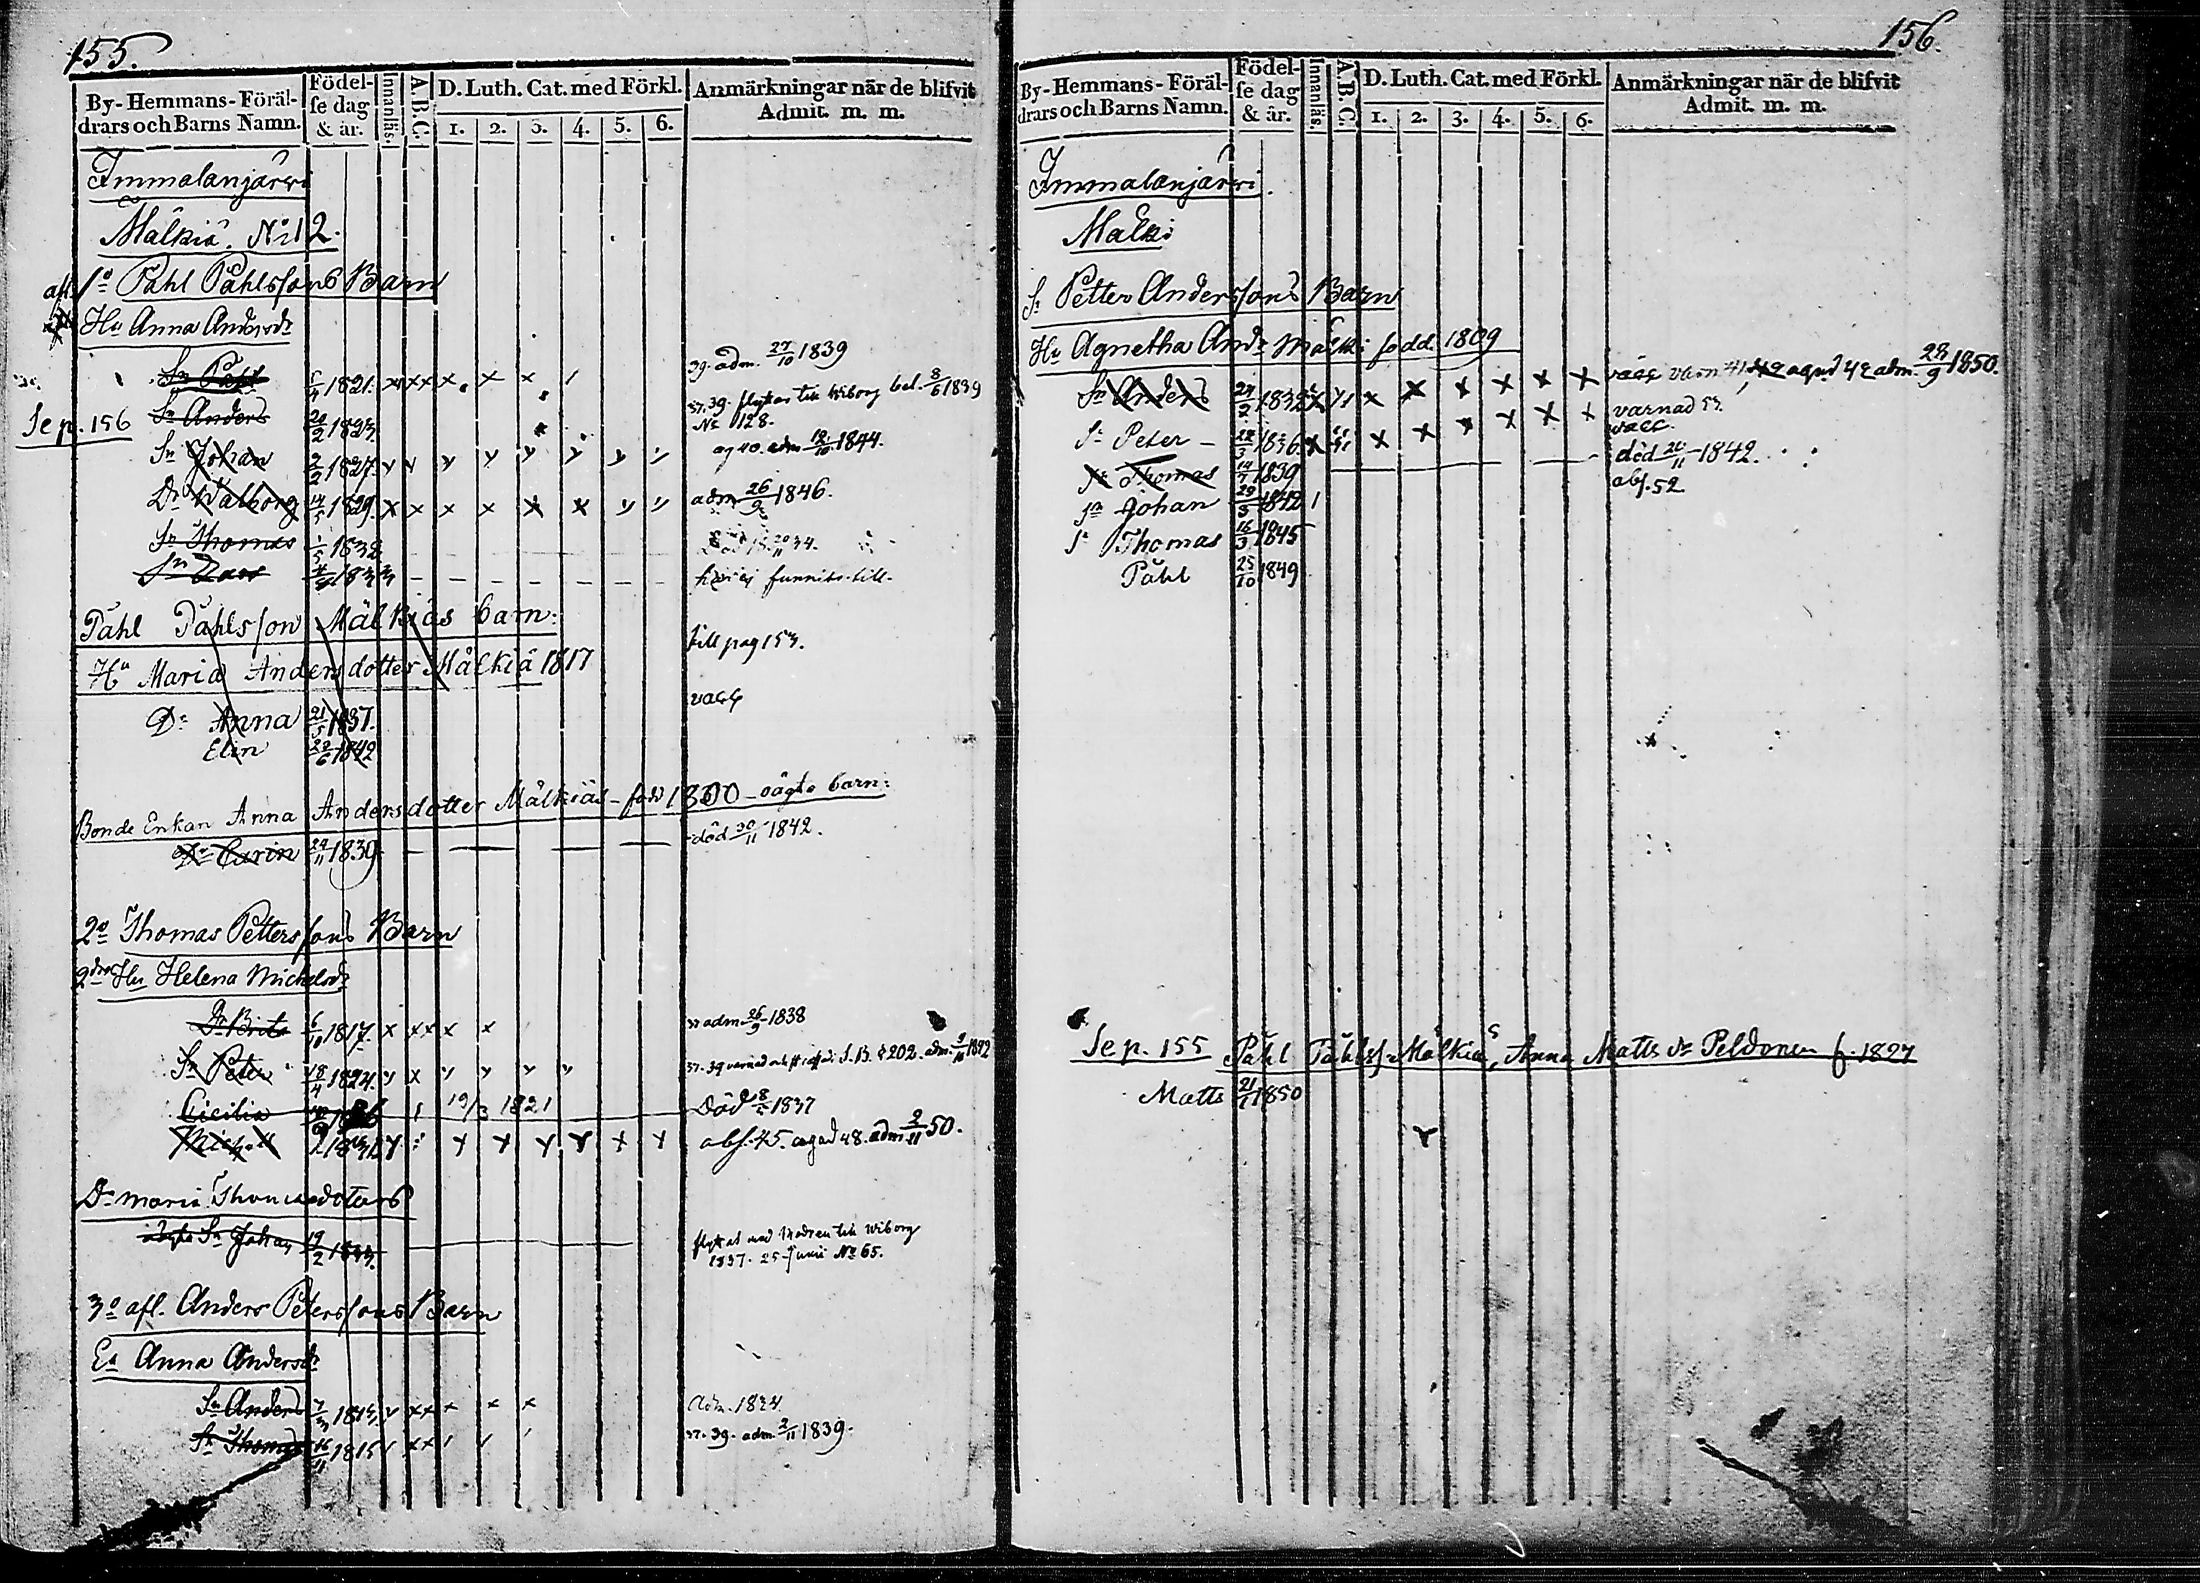 155.
By-Hemmans-Föräl-
drars och Barns Namn.
Födel-
se dag
& år.
Innanläs.
A.B.C.
D. Luth. Cat. med Förkl.
1. 2. 3. 4. 5. 6.
Anmärkningar när de blifvit
Admit. m. m.
Immalanjärvi
Mälkiä. No 12.
afl. 1o Påhl Påhlssons Barn
Hu Anna Andersdr
Sn Påhl 1821. x xx x x x 39. adm. 27/10 1839
Sep. 156 Sn Anders 20/2 1823 37. 39. flyttat till Wiborg bet. 8/6 1839
No 128.
Sn Johan 2/2 1827. ag 40. adm 12/10 1844.
Dr Walborg 14/5 1829. x x x x x x adm 26/9 1846.
Sn Thomas 1/5 1832
Sn 1833 ej funnits till.
Påhl Påhlsson Mälkiäs barn:
till pag 153.
Hu Maria Andersdotter Mälkiä 1817
Dr Anna 21/5 1837.
Elin 22/6 1842
Bonde Enkan Anna Andersdotter Mälkiäs - född 1800 - oägta barn:
Dr Carin 24/11 1839 död 30/11 1842.
2o Thomas Petterssons Barn
2dra Hu Helena Michelsdr
Dr Brita 6/10 1817. x xx x x 37 adm 26/9 1838
Sn Peter 18/4 1824. 37. 39 varnad S. B. § 202. adm. 1842
Cicilia 1 19/3 1821 Död 8/5 1837
Michell 1831 abs. 45. agad 48. adm 2/11 50.
Dr Maria Thomasdoters
oägta Sn Johan 19/2 1833. flyttat med modren till Wiborg
1837. 25 Junii No 65.
3o afl. Anders Peterssons Barn
Ea Anna Andersdr
Sn Anders 1813. xx x x x Adm. 1834.
Sn Thomas 16/11 1815 xx 37. 39. adm. 2/11 1839.
156.
By-Hemmans-Föräl-
drars och Barns Namn.
Födel-
se dag
& år.
Innanläs.
A.B.C.
D. Luth. Cat. med Förkl.
1. 2. 3. 4. 5. 6.
Anmärkningar när de blifvit
Admit. m. m.
Immalanjärvi.
Mälki
Sn Petter Anderssons Barn
Hu Agnetha Andr Mälki född. 1809
Sn Anders 24/2 1832 x x x x x x agad 42 adm. 28/9 1850.
varnad 53.
Sn Peter - 22/3 1836. x x x x x x
Sn Thomas 14/7 1839 död 20/11 1842.
Sn Johan 29/5 1842 1 abs. 52
Sn Thomas 16/3 1845
Påhl 25/10 1849
Sep. 155 Påhl Påhlss. Mälkiäs, Anna Matts dr Peldonen f. 1827
Matts 21/1 1850